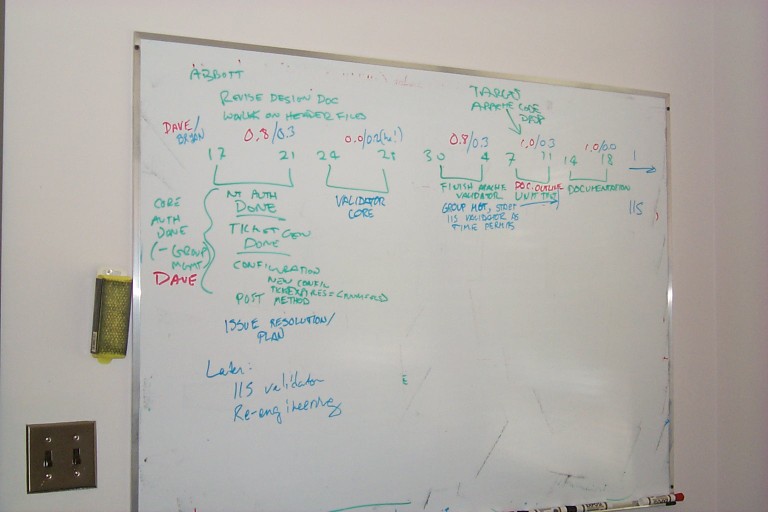 ABBOTT
REVISE DESIGN DOC
WORK ON HEADER FILES
TARGET
APACHE CODE
DROP
DAVE/
BRYAN
0.8/0.3
0.0/0.2(ha!)
0.8/0.3
1.0/0.3
1.0/0.0
17 21 24 28 30 4 7 11 14 18 1
NT AUTH
DONE
TICKET GEN
DONE
CONFIGURATION
NEW CONFIG
POST METHOD
CORE
AUTH
DONE
(- GROUP
MGMT)
DAVE
VALIDATOR
CORE
FINISH APACHE
VALIDATOR
GROUP MGT, START
IIS VALIDATOR AS
TIME PERMITS
DOC. OUTLINE
UNIT TEST
DOCUMENTATION
IIS
ISSUE RESOLUTION/
PLAN
Later:
IIS validator
Re-engineering
E